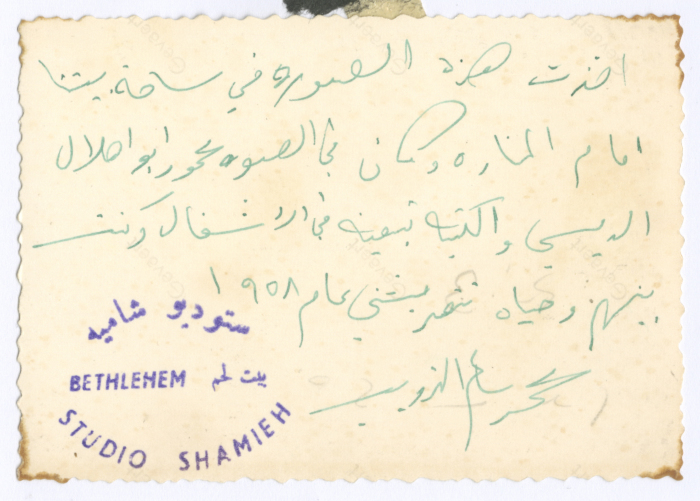 اخذت هذه الصوره في ساحة بيتنا
امام المناره وكان في الصوره محمود ابو اهلال
الديسي والكتبه تبعينه في الاشغال وكنت
بينهم وحياه تنتصر عام ١٩٥٨
محمد سالم الذويب
ستوديو شاميه
BETHLEHEM بيت لحم
STUDIO SHAMIEH